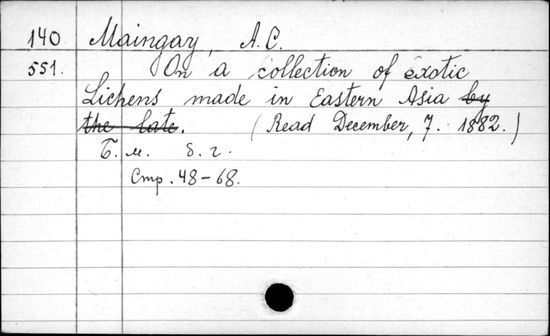 140 Maingay, A.C.
551. On a collection of exotic
Lichens made in Eastern Asia by
the late. (Read December, 7. 1882.)
Б. м. б. г.
Стр. 48-68.